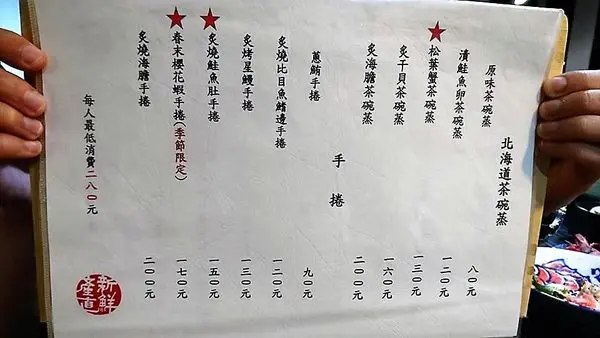 北海道茶碗蒸
原味茶碗蒸 八〇元
漬鮭魚卵茶碗蒸 一二〇元
★松葉蟹茶碗蒸 一三〇元
炙干貝茶碗蒸 一六〇元
炙海膽茶碗蒸 二〇〇元
手捲
蔥鮪手捲 九〇元
炙燒比目魚鰭邊手捲 一二〇元
炙烤星鰻手捲 一三〇元
★炙燒鮭魚肚手捲 一五〇元
★春末櫻花蝦手捲(季節限定) 一七〇元
炙燒海膽手捲 二〇〇元
每人最低消費二八〇元
新鮮
產直